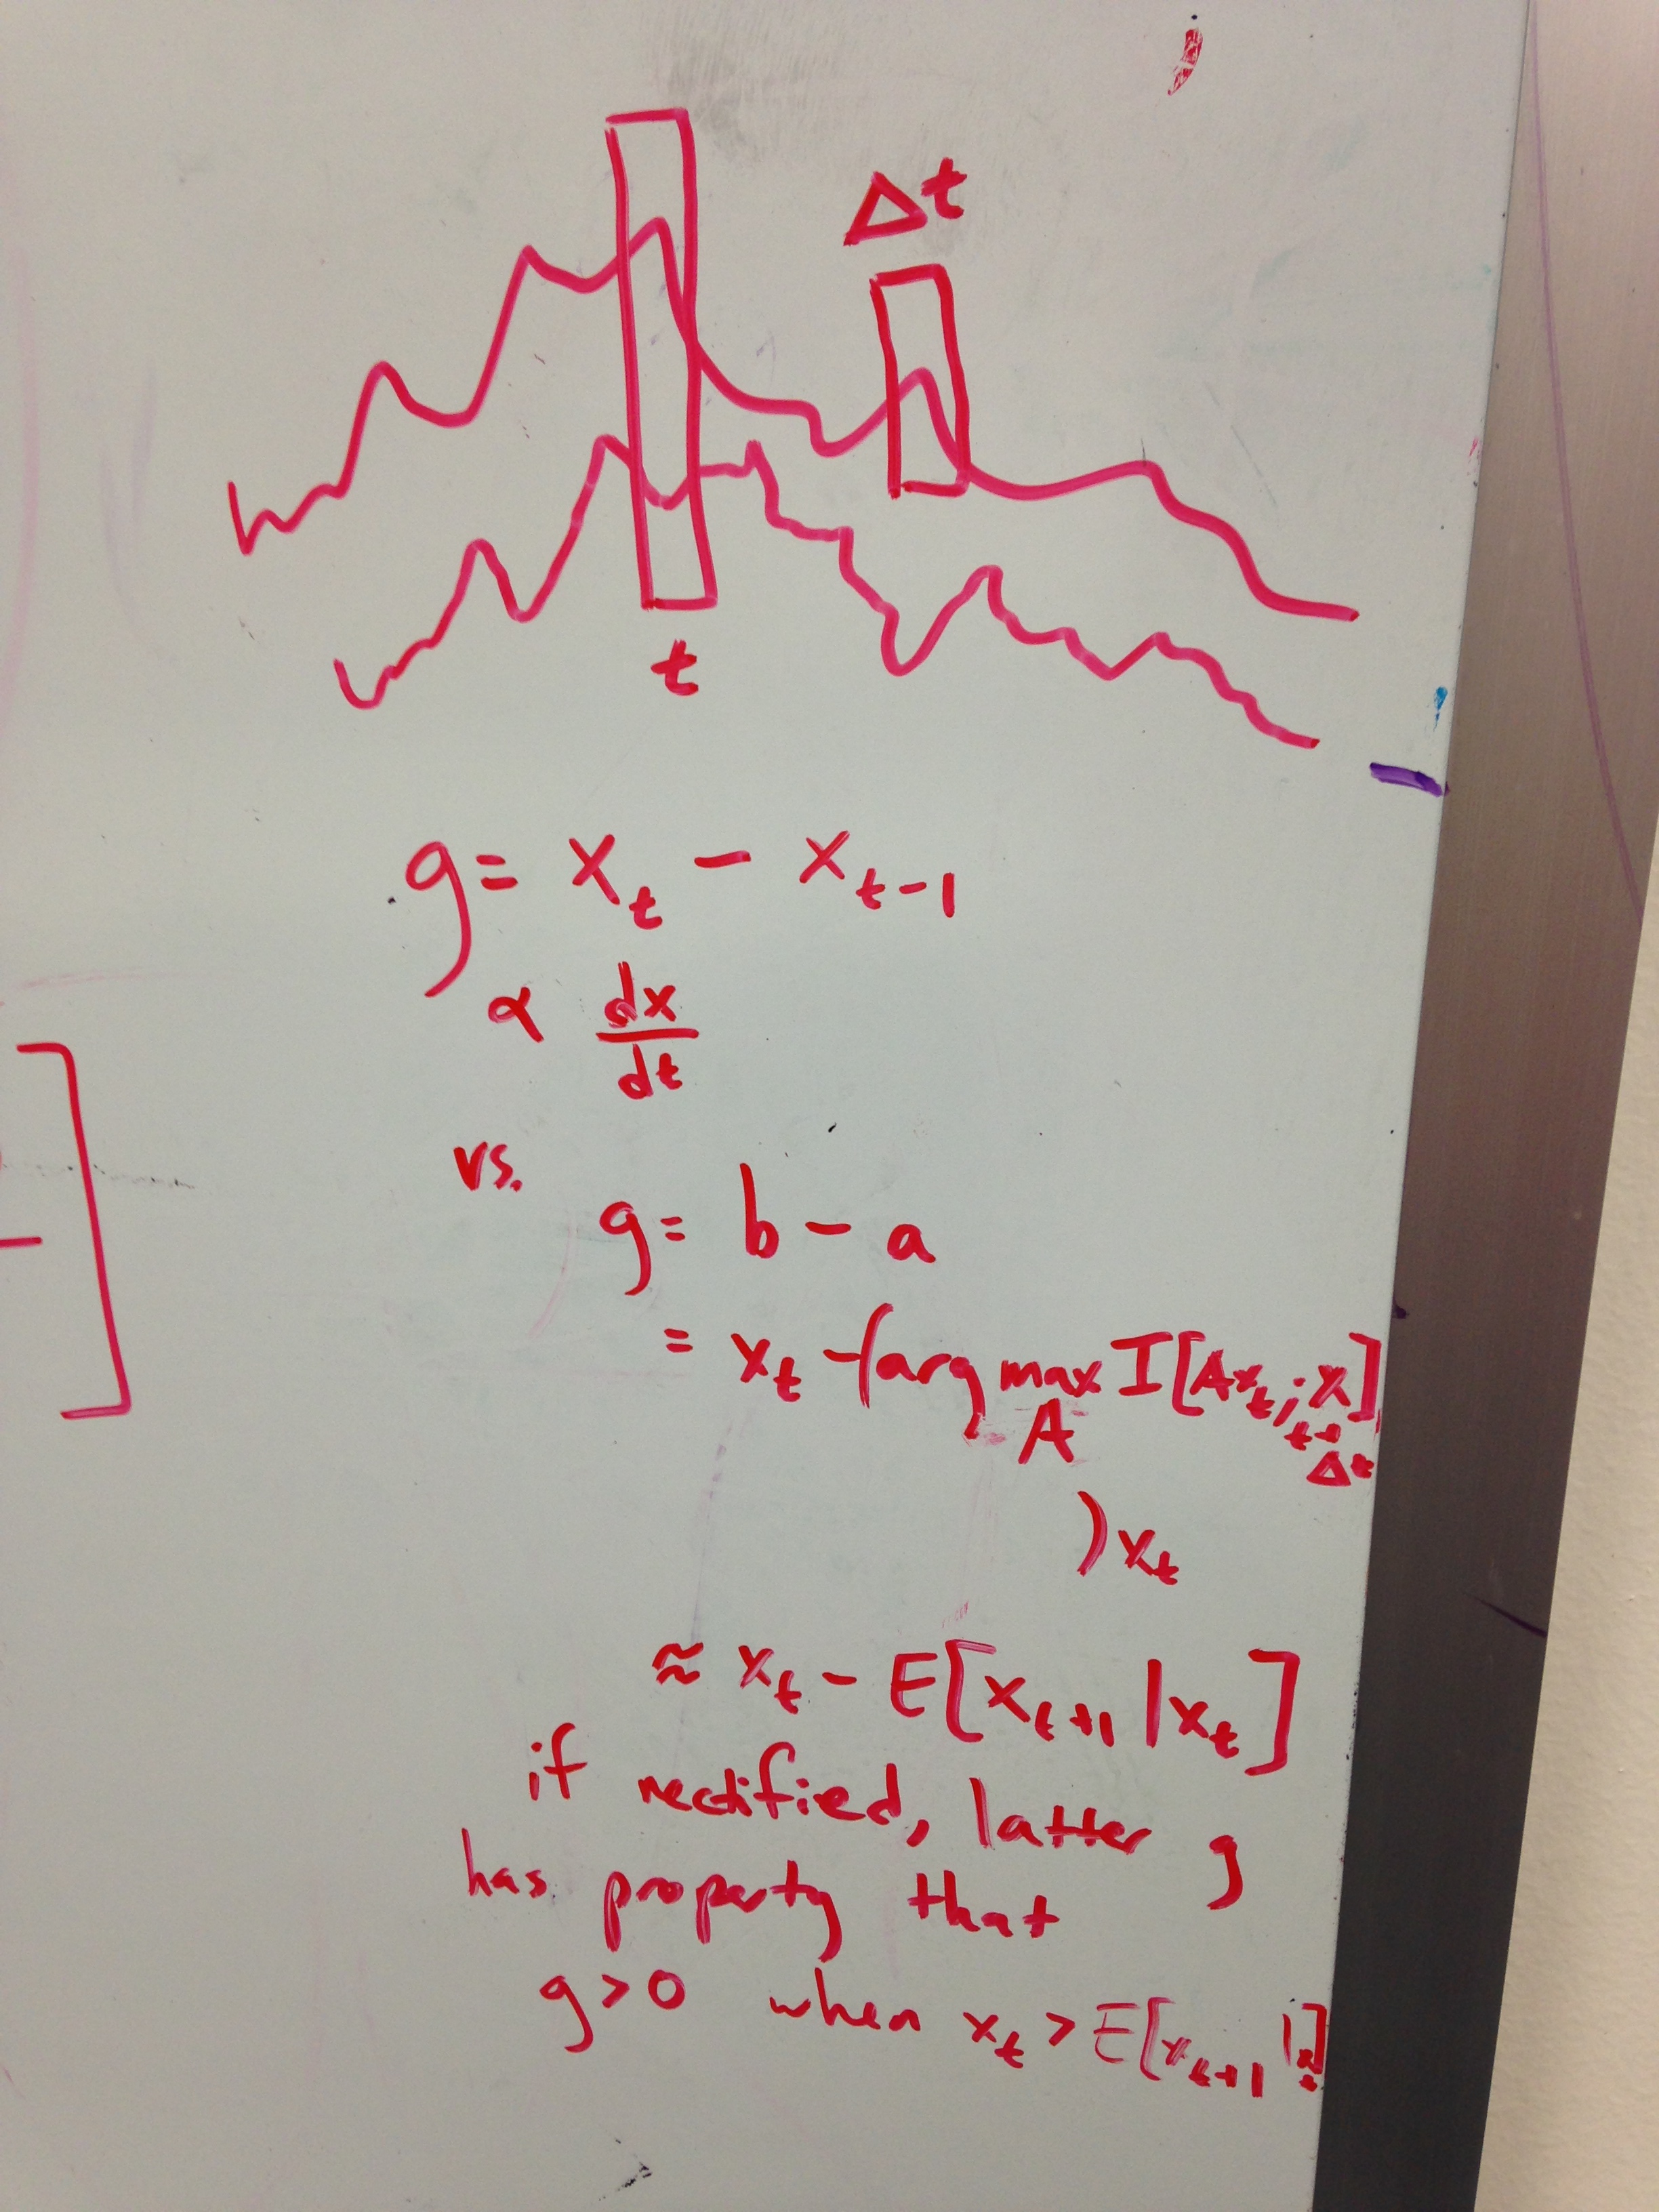 Δt
t
g = x_t - x_{t-1}
∝ dx/dt
vs.
g = b - a
= x_t - (arg max_A I[Ax_t; X_{t+Δt}]
) x_t
≈ x_t - E[x_{t+1} | x_t]
if rectified, latter g
has property that
g > 0 when x_t > E[x_{t+1} | x_t]